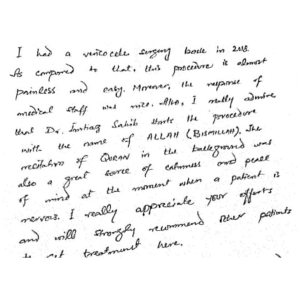 I had a varicocele surgery back in 2018.
As compared to that, this procedure is almost
painless and easy. Moreover, the response of
medical staff was nice. Also, I really admire
that Dr. Imtiaz Sahib starts the procedure
with the name of ALLAH (BISMILLAH). The
recitation of QURAN in the background was
also a great source of calmness and peace
of mind at the moment when a patient is
nervous. I really appreciate your efforts
and will strongly recommend other patients
to get treatment here.